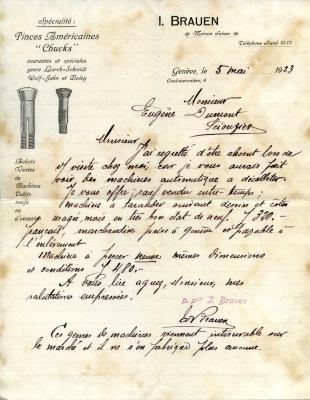 Spécialité:
Pinces Américaines
"Chucks"
courantes et spéciales
genre Lorch-Schmidt
Wolf-Jahn et Boley
Achats
Ventes
de
Machines
Outils
neufs
ou d'occasion
I. BRAUEN
Maison Suisse
Téléphone Stand 10.13
Genève, le 5 mai 1923
Coulouvrenière, 4
Monsieur
Eugène Dumont
Scionzier
Monsieur,
J'ai regretté d'être absent lors de
visite chez moi, car je vous aurais fait
voir des machines automatique a décolleter.
Je vous offre; sauf vendu entre-temps:
Machine à tarauder suivant dessin et
usagée, mais en très bon état de neuf. f 380.-
français, marchandise prise à Genève et payable à
l'enlèvement
Machine à percer neuve mêmes dimensions
et conditions f 480.-
A vous lire, Monsieur, mes
salutations empressées.
p. pon I. Brauen
Brauen
Ces genres de machines viennent introuvable sur
le marché et il ne s'en fabrique plus aucune.